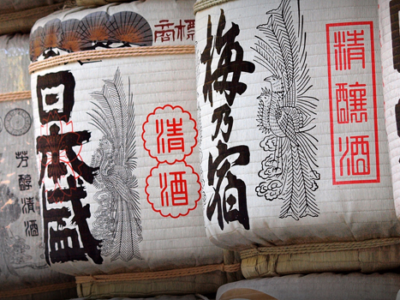 芳醇清酒
商標
日本盛
清酒
梅乃宿
清醸酒